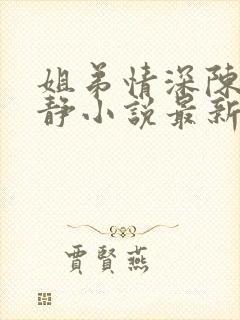 姐弟情深陈
静小説最新
賈賢燕